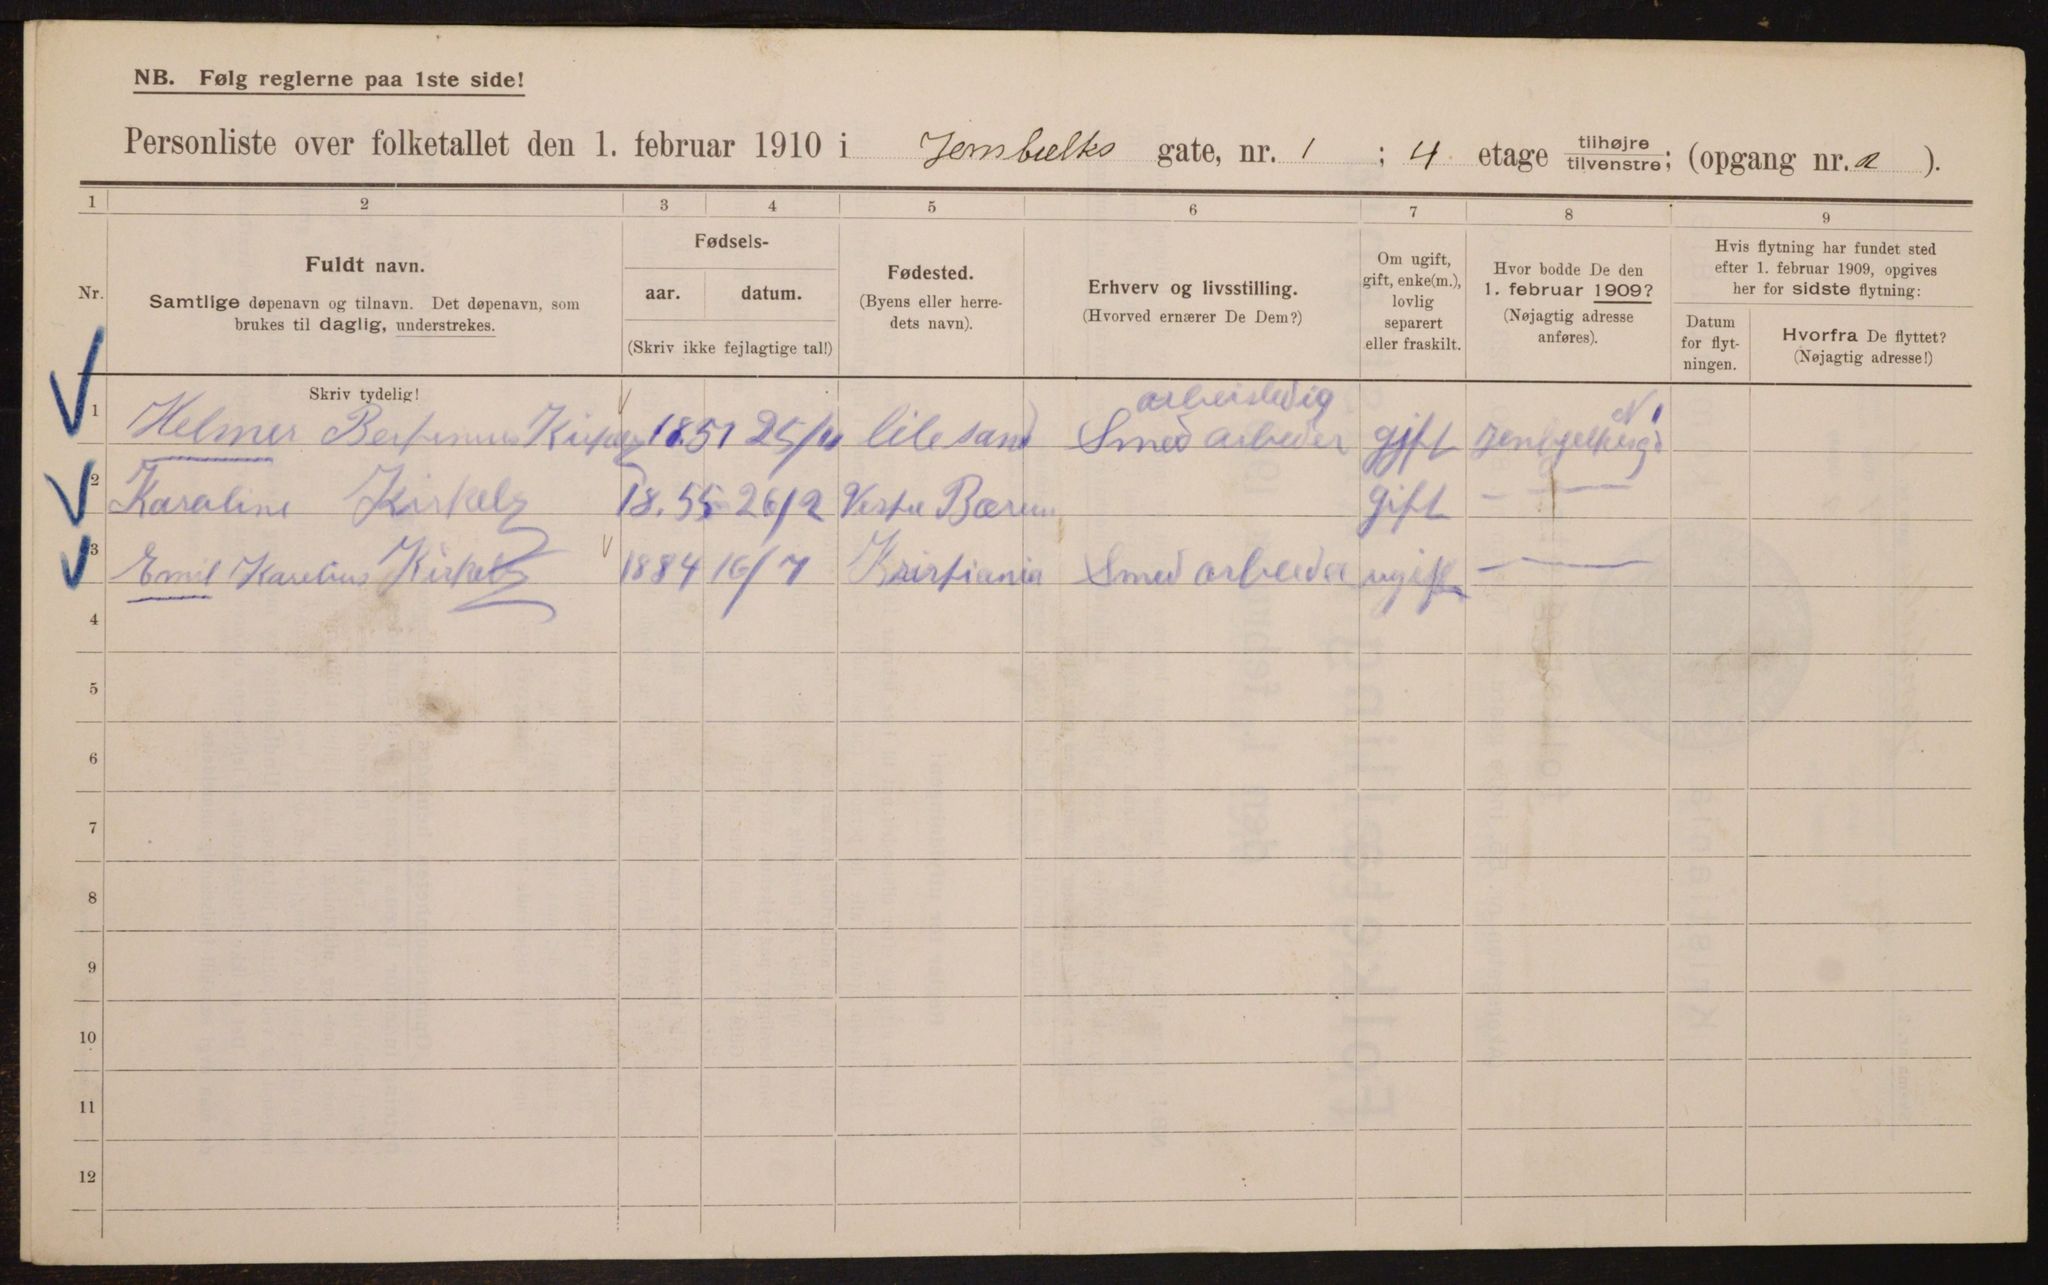 NB. Følg reglerne paa 1ste side!
Personliste over folketallet den 1. februar 1910 i Jernbælks gate, nr. 1 ; 4 etage tilhøjre tilvenstre; (opgang nr. a ).
1 2 3 4 5 6 7 8 9
Nr.
Fuldt navn.
Samtlige døpenavn og tilnavn. Det døpenavn, som
brukes til daglig, understrekes.
Fødsels-
aar. datum.
(Skriv ikke fejlagtige tal!)
Fødested.
(Byens eller herre-
dets navn).
Erhverv og livsstilling.
(Hvorved ernærer De Dem?)
Om ugift,
gift, enke(m.),
lovlig
separert
eller fraskilt.
Hvor bodde De den
1. februar 1909?
(Nøjagtig adresse
anføres).
Hvis flytning har fundet sted
efter 1. februar 1909, opgives
her for sidste flytning:
Datum
for flyt-
ningen.
Hvorfra De flyttet?
(Nøjagtig adresse!)
Skriv tydelig!
arbeisledig
N 1
1 Helmer Bertinius 1851 25/11 lilesand Smed arbeder gift
2 Karoline Kirkeby 18.55 26/2 Vestre Bærum gift — —
3 Emil Karelius Kirkeby 1884 16/7 Kristiania Smed arbeider ugift — —
4
5
6
7
8
9
10
11
12